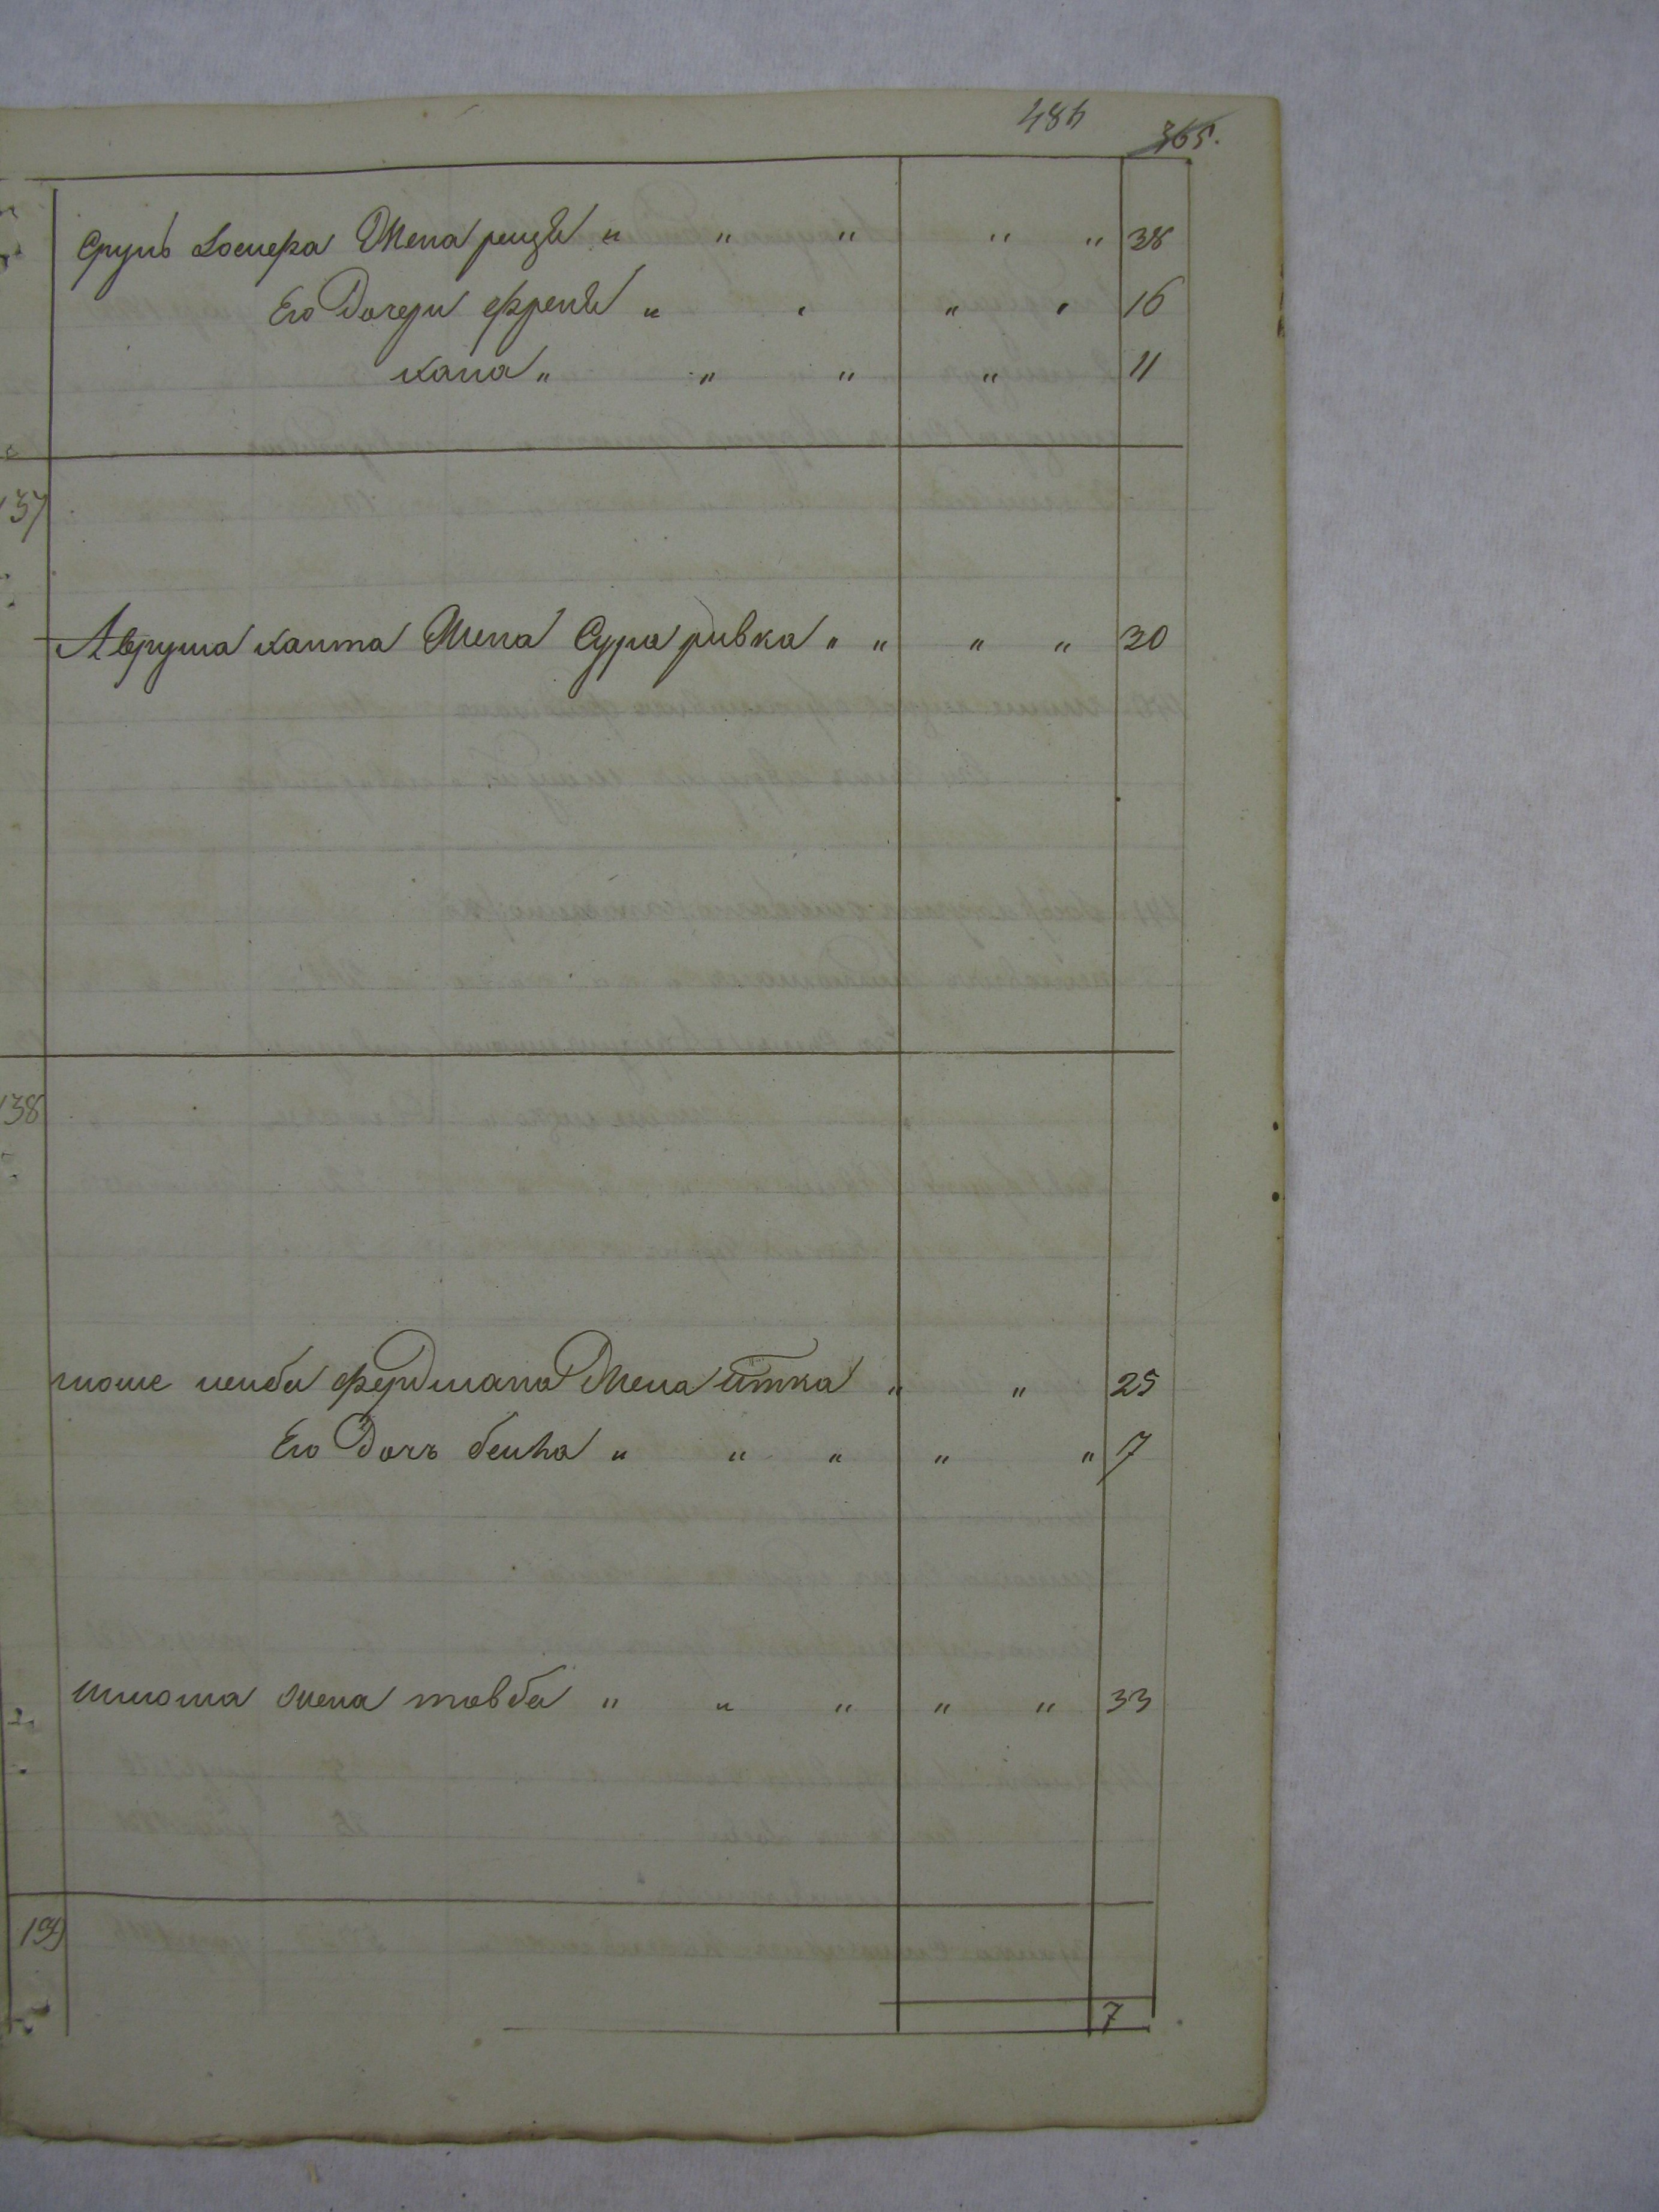 484 365.
Срулъ Лоспера Жена рейзя " " " " " 38
Его Дочери Френя " " " " 16
хана " " " " 11
137
Авруша хаима Жена Сура ривка " " " " 30
138
мошс лейба Фердмана Жена итка " " 25
Его Дочъ бейла " " " " " 7
Шлома Жена товба " " " " " 33
139
7